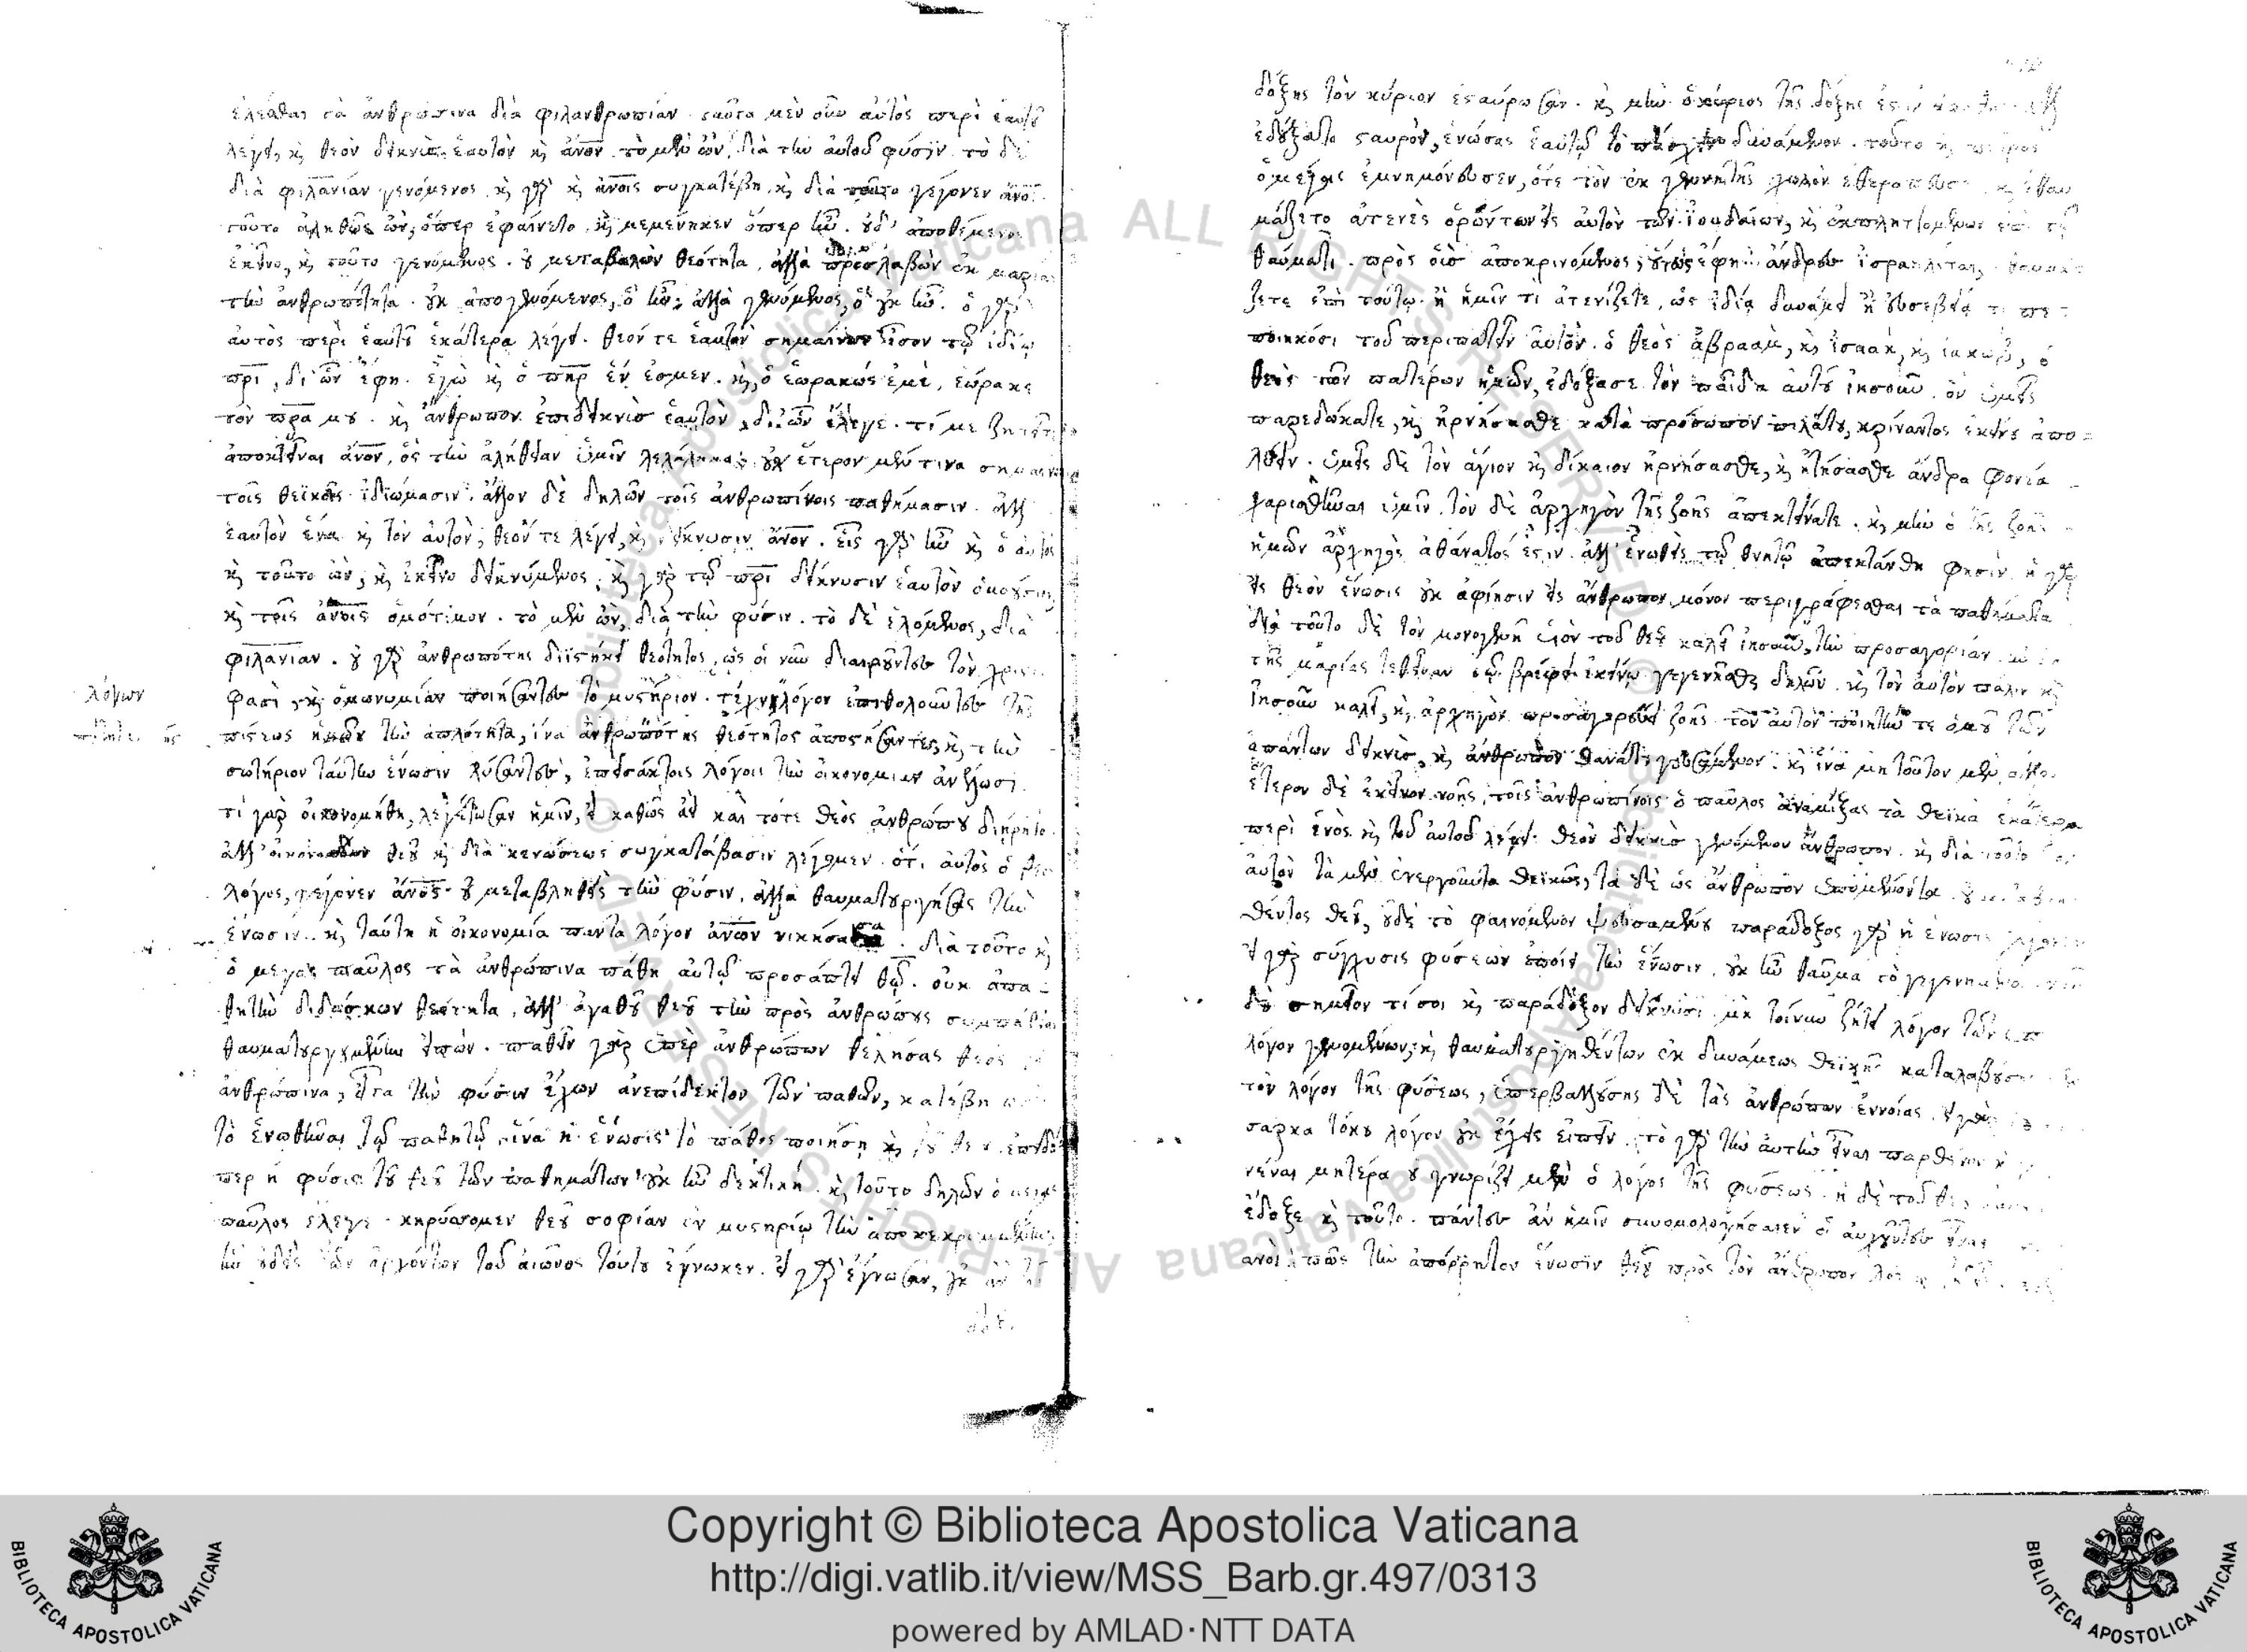 ἑλέσθαι τὰ ἀνθρώπινα διὰ φιλανθρωπίαν. ταῦτα μὲν οὖν αὐτὸς περὶ ἑαυτοῦ
λέγει, κὶ θεὸν δεικνὺς ἑαυτὸν κὶ ἄνον. τὸ μὲν ὢν, διὰ τὴν αὐτοῦ φύσιν. τὸ δὲ
διὰ φιλανίαν γενόμενος. κὶ γὰρ κὶ ἀνοις συγκατέβη, κὶ διὰ τοῦτο γέγονεν ἄνος
τοῦτο ἀληθῶς ὢν, ὅπερ ἐφαίνετο, κὶ μεμένηκεν ὅπερ ἦν. οὐδ' ἀποθέμενος
ἐκεῖνο, κὶ τοῦτο γενόμενος. οὐ μεταβαλὼν θεότητα, ἀλλὰ προσλαβὼν ἐκ μαρίας
τὴν ἀνθρωπότητα. οὐκ ἀπογενόμενος, ὃ ἦν, ἀλλὰ γενόμενος, ὃ οὐκ ἦν. ὁ γὰρ
αὐτὸς περὶ ἑαυτοῦ ἑκάτερα λέγει. θεόν τε ἑαυτὸν σημαίνων ἴσον τῷ ἰδίῳ
πρὶ, δι' ὧν ἔφη. ἐγὼ κὶ ὁ πηρ ἕν ἐσμεν. κὶ, ὁ ἑωρακὼς ἐμὲ, ἑώρακε
τὸν πρα μου. κὶ ἄνθρωπον ἐπιδεικνὺς ἑαυτὸν, δι' ὧν ἔλεγε. τί με ζητεῖτε
ἀποκτεῖναι ἄνον, ὃς τὴν ἀλήθειαν ὑμῖν λελάληκα; οὐχ ἕτερον μέν τινα σημαίνων
τοῖς θεϊκοῖς ἰδιώμασιν, ἄλλον δὲ δηλῶν τοῖς ἀνθρωπίνοις παθήμασιν. ἀλλ'
ἑαυτὸν ἕνα κὶ τὸν αὐτὸν, θεόν τε λέγει, κὶ δείκνυσιν ἄνον. εἷς γὰρ ἦν κὶ ὁ αὐτὸς
κὶ τοῦτο ὢν, κὶ ἐκεῖνο δεικνύμενος. κὶ γὰρ τῷ πρὶ δείκνυσιν ἑαυτὸν ὁμοούσιον,
κὶ τοῖς ἀνοις ὁμότιμον. τὸ μὲν ὢν, διὰ τὴν φύσιν. τὸ δὲ ἑλόμενος, διὰ
φιλανίαν. οὐ γὰρ ἀνθρωπότης διΐστηκε θεότητος, ὡς οἱ νῦν διαιροῦντες τὸν χριστὸν
φασὶ, κὶ ὁμωνυμίαν ποιήσαντες τὸ μυστήριον. τέχνῃ λόγων ἐπιθολοῦντες τῆς
λόγων
πίστεως ἡμῶν τὴν ἁπλότητα, ἵνα ἀνθρωπότης θεότητος ἀποστήσαντες, κὶ τὴν
σωτήριον ταύτην ἕνωσιν λύσαντες, ἐπεισάκτοις λόγοις τὴν οἰκονομίαν ἀνέλωσι.
τί γὰρ οἰκονομήθη, λεγέτωσαν ἡμῖν, εἰ καθὼς ἀεὶ καὶ τότε θεὸς ἀνθρώπου διῄρητο.
ἀλλ' οἰκονομίαν θεοῦ κὶ διὰ κενώσεως συγκατάβασιν λέγομεν. ὅτι αὐτὸς ὁ θεὸς
λόγος, γέγονεν ἄνος. οὐ μεταβληθεὶς τὴν φύσιν, ἀλλὰ θαυματουργήσας τὴν
ἕνωσιν. κὶ ταύτῃ ἡ οἰκονομία πάντα λόγον ἀνων νικήσασα. διὰ τοῦτο κὶ
ὁ μέγας παῦλος τὰ ἀνθρώπινα πάθη αὐτῷ προσάπτει θῷ. οὐκ ἀπα-
θητὴν διδάσκων θεότητα, ἀλλ' ἀγαθοῦ θεοῦ τὴν πρὸς ἀνθρώπους συμπάθειαν
θαυματουργουμένην εἰπών. παθεῖν γὰρ ὑπὲρ ἀνθρώπων θελήσας θεὸς
ἀνθρώπινα, εἶτα τὴν φύσιν ἔχων ἀνεπίδεκτον τῶν παθῶν, κατέβη
τὸ ἑνωθῆναι τῷ παθητῷ, ἵνα ἡ ἕνωσις τὸ πάθος ποιήσῃ κὶ τοῦ θεοῦ. ἐπειδὴ
περ ἡ φύσις τοῦ θεοῦ τῶν παθημάτων οὐκ ἦν δεκτική. κὶ τοῦτο δηλῶν ὁ μέγας
παῦλος ἔλεγε. κηρύττομεν θεοῦ σοφίαν ἐν μυστηρίῳ τὴν ἀποκεκρυμμένην,
ἣν οὐδεὶς τῶν ἀρχόντων τοῦ αἰῶνος τούτου ἔγνωκεν. εἰ γὰρ ἔγνωσαν, οὐκ ἂν τὸν
δόξης τὸν κύριον ἐσταύρωσαν. κὶ μὴν ὁ κύριος τῆς δόξης
ἐδέξατο σταυρὸν, ἑνώσας ἑαυτῷ τὸ πάσχειν δυνάμενον. τοῦτο κὶ πέτρος
ὁ μέγας ἐμνημόνευσεν, ὅτε τὸν ἐκ γεννητῆς χωλὸν ἐθεράπευσε, κὶ ἐθαυ
μάζετο ἀτενὲς ὁρώντων εἰς αὐτὸν τῶν ἰουδαίων, κὶ ἐκπληττομένων ἐπὶ τῷ
θαύματι. πρὸς οὓς ἀποκρινόμενος, οὕτως ἔφη. ἄνδρες ἰσραηλῖται, θαυμά
ζετε ἐπὶ τούτῳ. ἢ ἡμῖν τί ἀτενίζετε, ὡς ἰδίᾳ δυνάμει ἢ εὐσεβείᾳ τι πε-
ποιηκόσι τοῦ περιπατεῖν αὐτόν. ὁ θεὸς ἀβραὰμ, κὶ ἰσαὰκ, κὶ ἰακὼβ, ὁ
θεὸς τῶν πατέρων ἡμῶν, ἐδόξασε τὸν παῖδα αὐτοῦ ἰησοῦν. ὃν ὑμεῖς
παρεδώκατε, κὶ ἠρνήσασθε κατὰ πρόσωπον πιλάτου, κρίναντος ἐκείνου ἀπο-
λύειν. ὑμεῖς δὲ τὸν ἅγιον κὶ δίκαιον ἠρνήσασθε, κὶ ᾐτήσασθε ἄνδρα φονέα
χαρισθῆναι ὑμῖν. τὸν δὲ ἀρχηγὸν τῆς ζωῆς ἀπεκτείνατε. κὶ μὴν ὁ τῆς ζωῆς
ἡμῶν ἀρχηγὸς ἀθάνατός ἐστιν. ἀλλ' ἑνωθεὶς τῷ θνητῷ ἀπεκτάνθη φησίν. ἡ γὰρ
εἰς θεὸν ἕνωσις οὐκ ἀφίησιν εἰς ἄνθρωπον μόνον περιγράφεσθαι τὰ παθήματα
διὰ τοῦτο δὲ τὸν μονογενῆ υἱὸν τοῦ θεοῦ καλεῖ ἰησοῦν, τὴν προσαγορίαν
τῆς μαρίας τεθεῖσαν τῷ βρέφει ἐκείνῳ γεγενῆσθαι δηλῶν. κὶ τὸν αὐτὸν πάλιν κὶ
ἰησοῦν καλεῖ, κὶ ἀρχηγὸν προσαγορεύει ζωῆς. τὸν αὐτὸν ποιητήν τε ὁμοῦ τῶν
ἁπάντων δεικνὺς, κὶ ἄνθρωπον θανάτου γευσάμενον. κὶ ἵνα μὴ τοῦτον μὲν
ἕτερον δὲ ἐκεῖνον νοῇς, τοῖς ἀνθρωπίνοις ὁ παῦλος ἀναμίξας τὰ θεϊκὰ ἑκάτερα
περὶ ἑνὸς κὶ τοῦ αὐτοῦ λέγει. θεὸν δεικνὺς γενόμενον ἄνθρωπον. κὶ διὰ τοῦτο
αὐτὸν τὰ μὲν ἐνεργοῦντα θεϊκῶς, τὰ δὲ ὡς ἄνθρωπον ὑπομένοντα.
θέντος θεοῦ, οὐδὲ τὸ φαινόμενον ψευσαμένου παράδοξος γὰρ ἡ ἕνωσις
εἰ γὰρ σύγχυσις φύσεων ἐποίει τὴν ἕνωσιν, οὐκ ἦν θαῦμα τὸ γεγενημένον
δὲ σημεῖόν τί σοι κὶ παράδοξον δείκνυσι. μὴ τοίνυν ζήτει λόγον τῶν ὑπὲρ
λόγον γενομένων, κὶ θαυματουργηθέντων ἐκ δυνάμεως θεϊκῆς καταλαβούσης
τὸν λόγον τῆς φύσεως, ὑπερβαλλούσης δὲ τὰς ἀνθρώπων ἐννοίας.
σάρκα τόκου λόγον οὐκ ἔχεις εἰπεῖν. τὸ γὰρ τὴν αὐτὴν εἶναι παρθένον κὶ
νέναι μητέρα οὐ γνωρίζει μὲν ὁ λόγος τῆς φύσεως. ἡ δὲ τοῦ θεοῦ
ἔδειξε κὶ τοῦτο. πάντες ἂν ἡμῖν συνομολογήσαιεν
ἀνοι. πῶς τὴν ἀπόρρητον ἕνωσιν θεοῦ πρὸς τὸν ἄνθρωπον
Copyright © Biblioteca Apostolica Vaticana
http://digi.vatlib.it/view/MSS_Barb.gr.497/0313
powered by AMLAD·NTT DATA
BIBLIOTECA APOSTOLICA VATICANA
BIBLIOTECA APOSTOLICA VATICANA